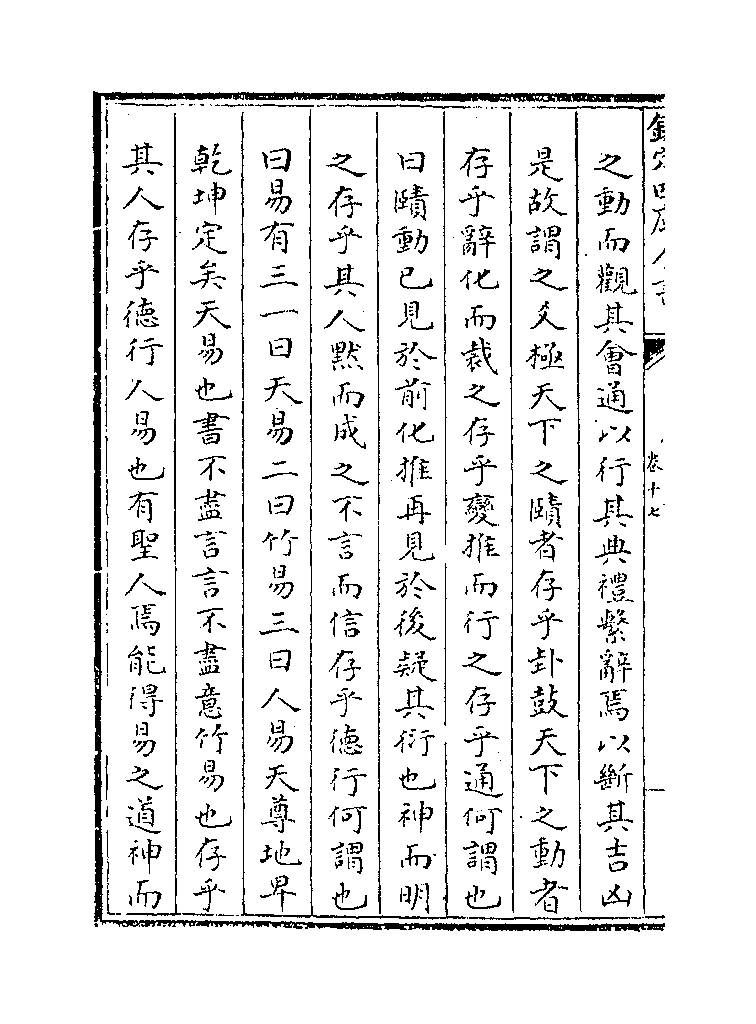 欽定四庫全書
卷十七
之動而觀其會通以行其典禮繫辭焉以斷其吉凶
是故謂之爻極天下之賾者存乎卦鼓天下之動者
存乎辭化而裁之存乎變推而行之存乎通何謂也
曰賾動已見於前化推再見於後疑其衍也神而明
之存乎其人黙而成之不言而信存乎徳行何謂也
曰易有三一曰天易二曰竹易三曰人易天尊地卑
乾坤定矣天易也書不盡言言不盡意竹易也存乎
其人存乎徳行人易也有聖人焉能得易之道神而